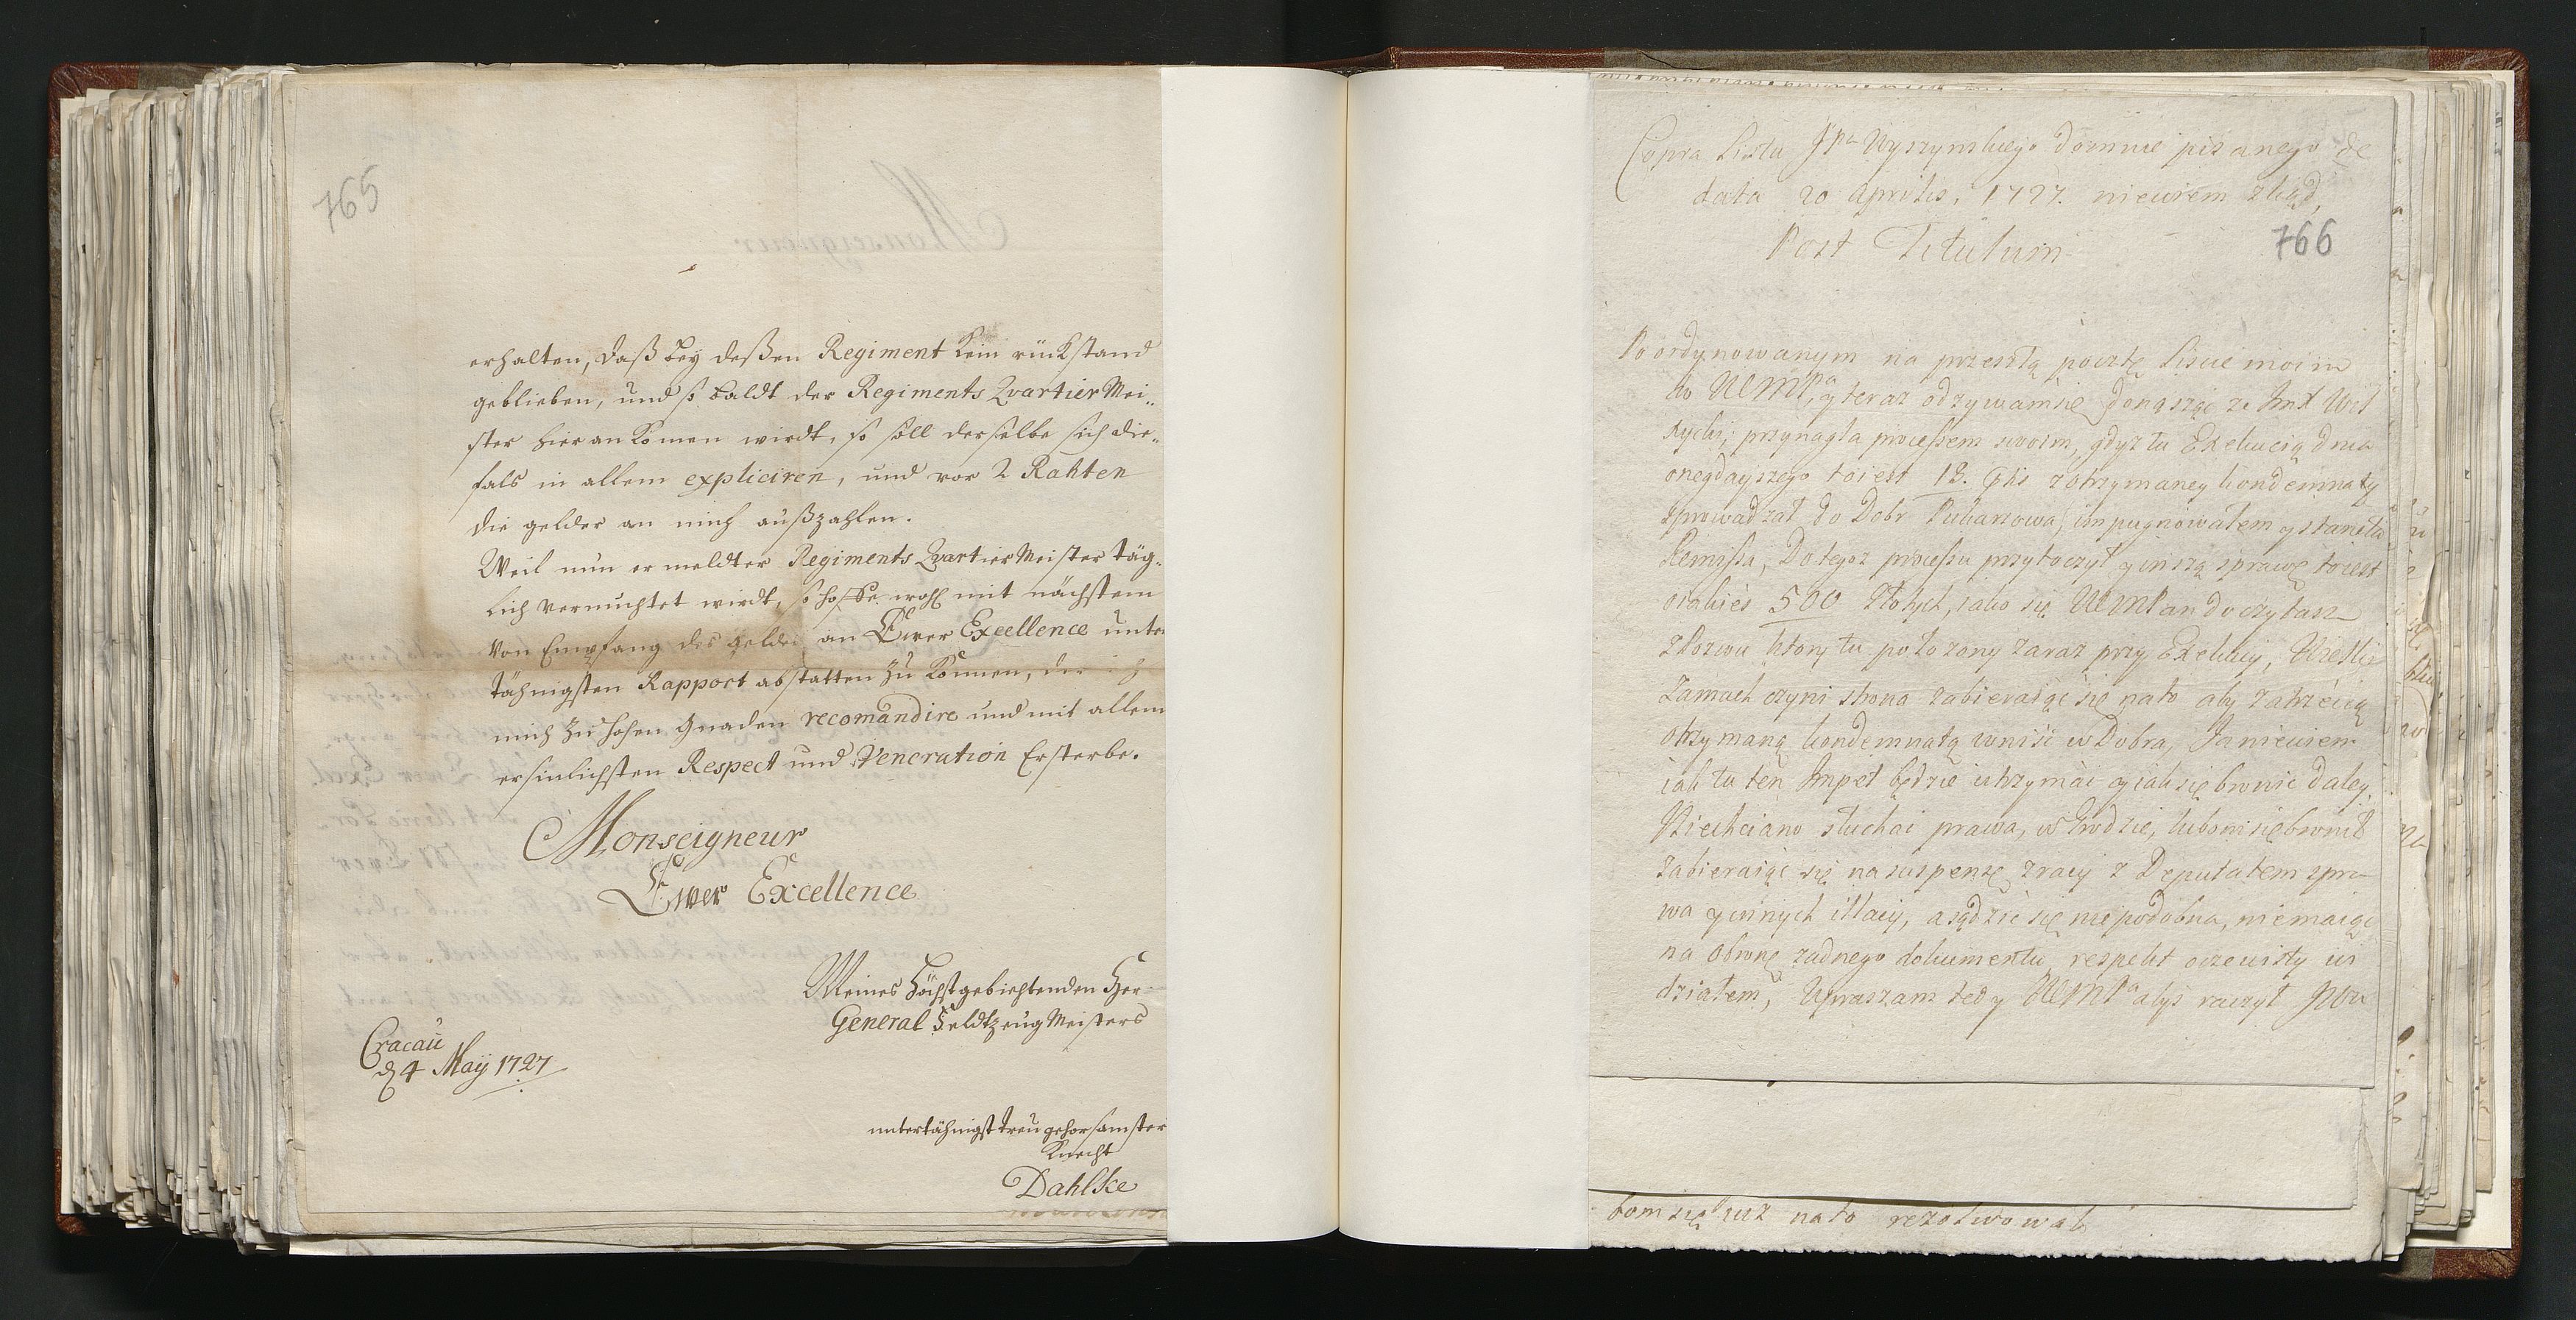 765
erhalten, daß bey deßen Regiment kein rückstand
geblieben, und so baldt der Regiments Qvartier Mei„
ster hier an komen wirdt, so soll derselbe sich die„
fals in allem expliciren, und vor 2 Rahten
die gelder an mich außzahlen.
Weil nun er meldter Regiments Qvartier Meister täg„
lich vermuhtet wirdt, so hoffe wohl mit nächstem
von Empfang des gelder an Ewer Excellence unter
tähnigsten Rapport abstatten zu können, der ich
mich zu hohen Gnaden recomandire und mit allem
ersinlichsten Respect und Veneration Ersterbe.
Monseigneur
Ewer Excellence
Meines Höchstgebiehtenden Her
General Feldtzeug Meisters
Cracau
d 4 Maÿ 1727
untertähnigst treu gehorsamster
Knecht
Dahlke
Copia Listu JPa Wyszynskiego do mnie pisanego de
data 20 Aprilis, 1727. niewiem zkąd,
766
Post Titulum
Po ordynowanym na przeszłą pocztę liscie moim
do WMPa, y teraz odzywam się donosząc ze Imx
przynagla processem swoim, gdyz tu Exekucią dnia
onegdayszego toiest 18. otrzymaney kondemnaty
sprowadzał do Dobr impugnowałem y stanęła
Remissa, Do tegoz processu przytoczył y inszą sprawę toiest
o iakies 500 Złotych, iako się WMPan doczytasz
z Pozwu ktory tu połozony zaraz przy Exekucij, Wielki
Zamach czyni strona zabieraiąc się nato aby za trzecią
otrzymaną kondemnatą wnisc w Dobra, Ja niewiem
iak tu ten Impet będzie utrzymac y iak się bronic daley,
Niechciano słuchac prawa, w Grodzie, lubom się bronił
zabieraiąc się na suspensę, z racij z Deputatem spra
wa y innych illacij, a sądzic się niepodobna, niemaiąc
na obronę zadnego dokumentu, respekt oczewisty wi
działem, Upraszam tedy WMPa abys raczył
bom się iuz nato rezolwował